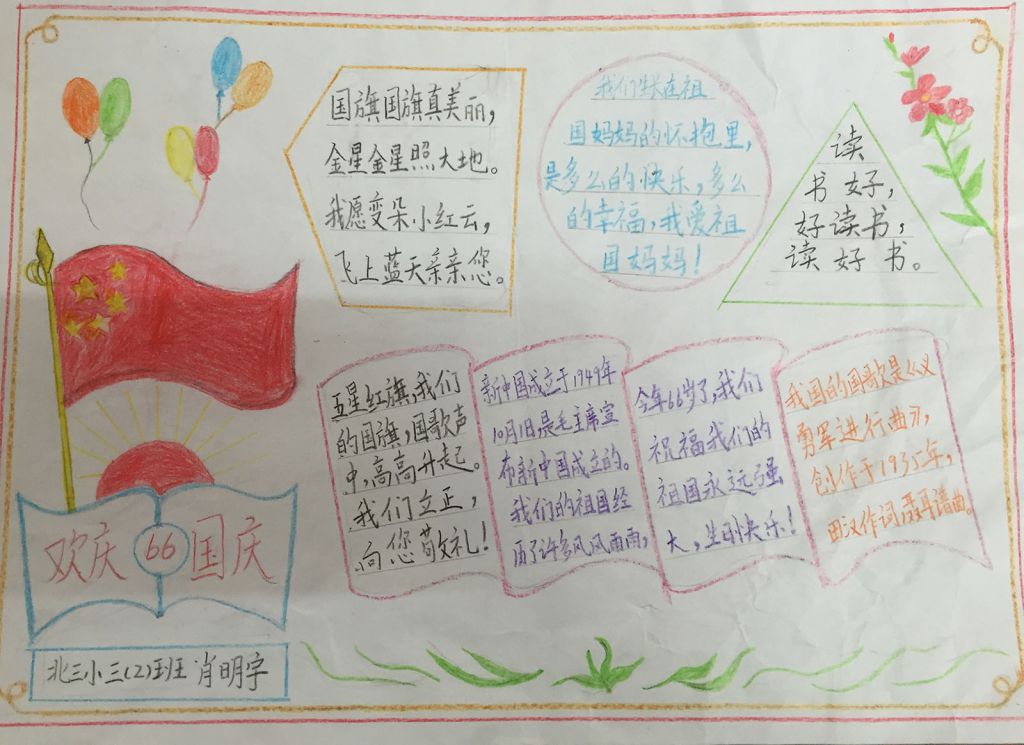 国旗国旗真美丽，
金星金星照大地。
我愿变朵小红云，
飞上蓝天亲亲您。
我们生长在祖
国妈妈的怀抱里，
是多么的快乐，多么
的幸福，我爱祖
国妈妈！
读
书好，
好读书，
读好书。
五星红旗，我们
的国旗，国歌声
中，高高升起。
我们立正，
向您敬礼！
新中国成立于1949年
10月1日，是毛主席宣
布新中国成立的。
我们的祖国经
历了许多风风雨雨，
今年66岁了，我们
祝福我们的
祖国永远强
大，生日快乐！
我国的国歌是《义
勇军进行曲》，
创作于1935年，
田汉作词，聂耳谱曲。
欢庆 66 国庆
北三小三(2)班 肖明宇